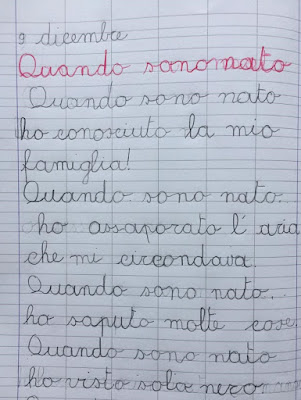 9 dicembre
Quando sono nato
Quando sono nato
ho conosciuto la mio
famiglia!
Quando sono nato.
ho assaporato l'aria
che mi circondava.
Quando sono nato.
ho saputo molte cose.
Quando sono nato
ho visto solo nero